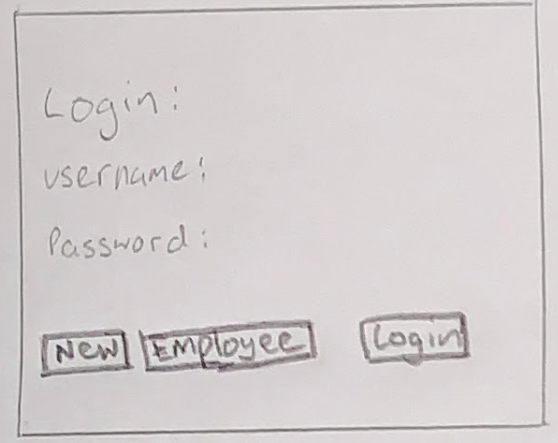 Login:
username:
Password:
New Employee Login